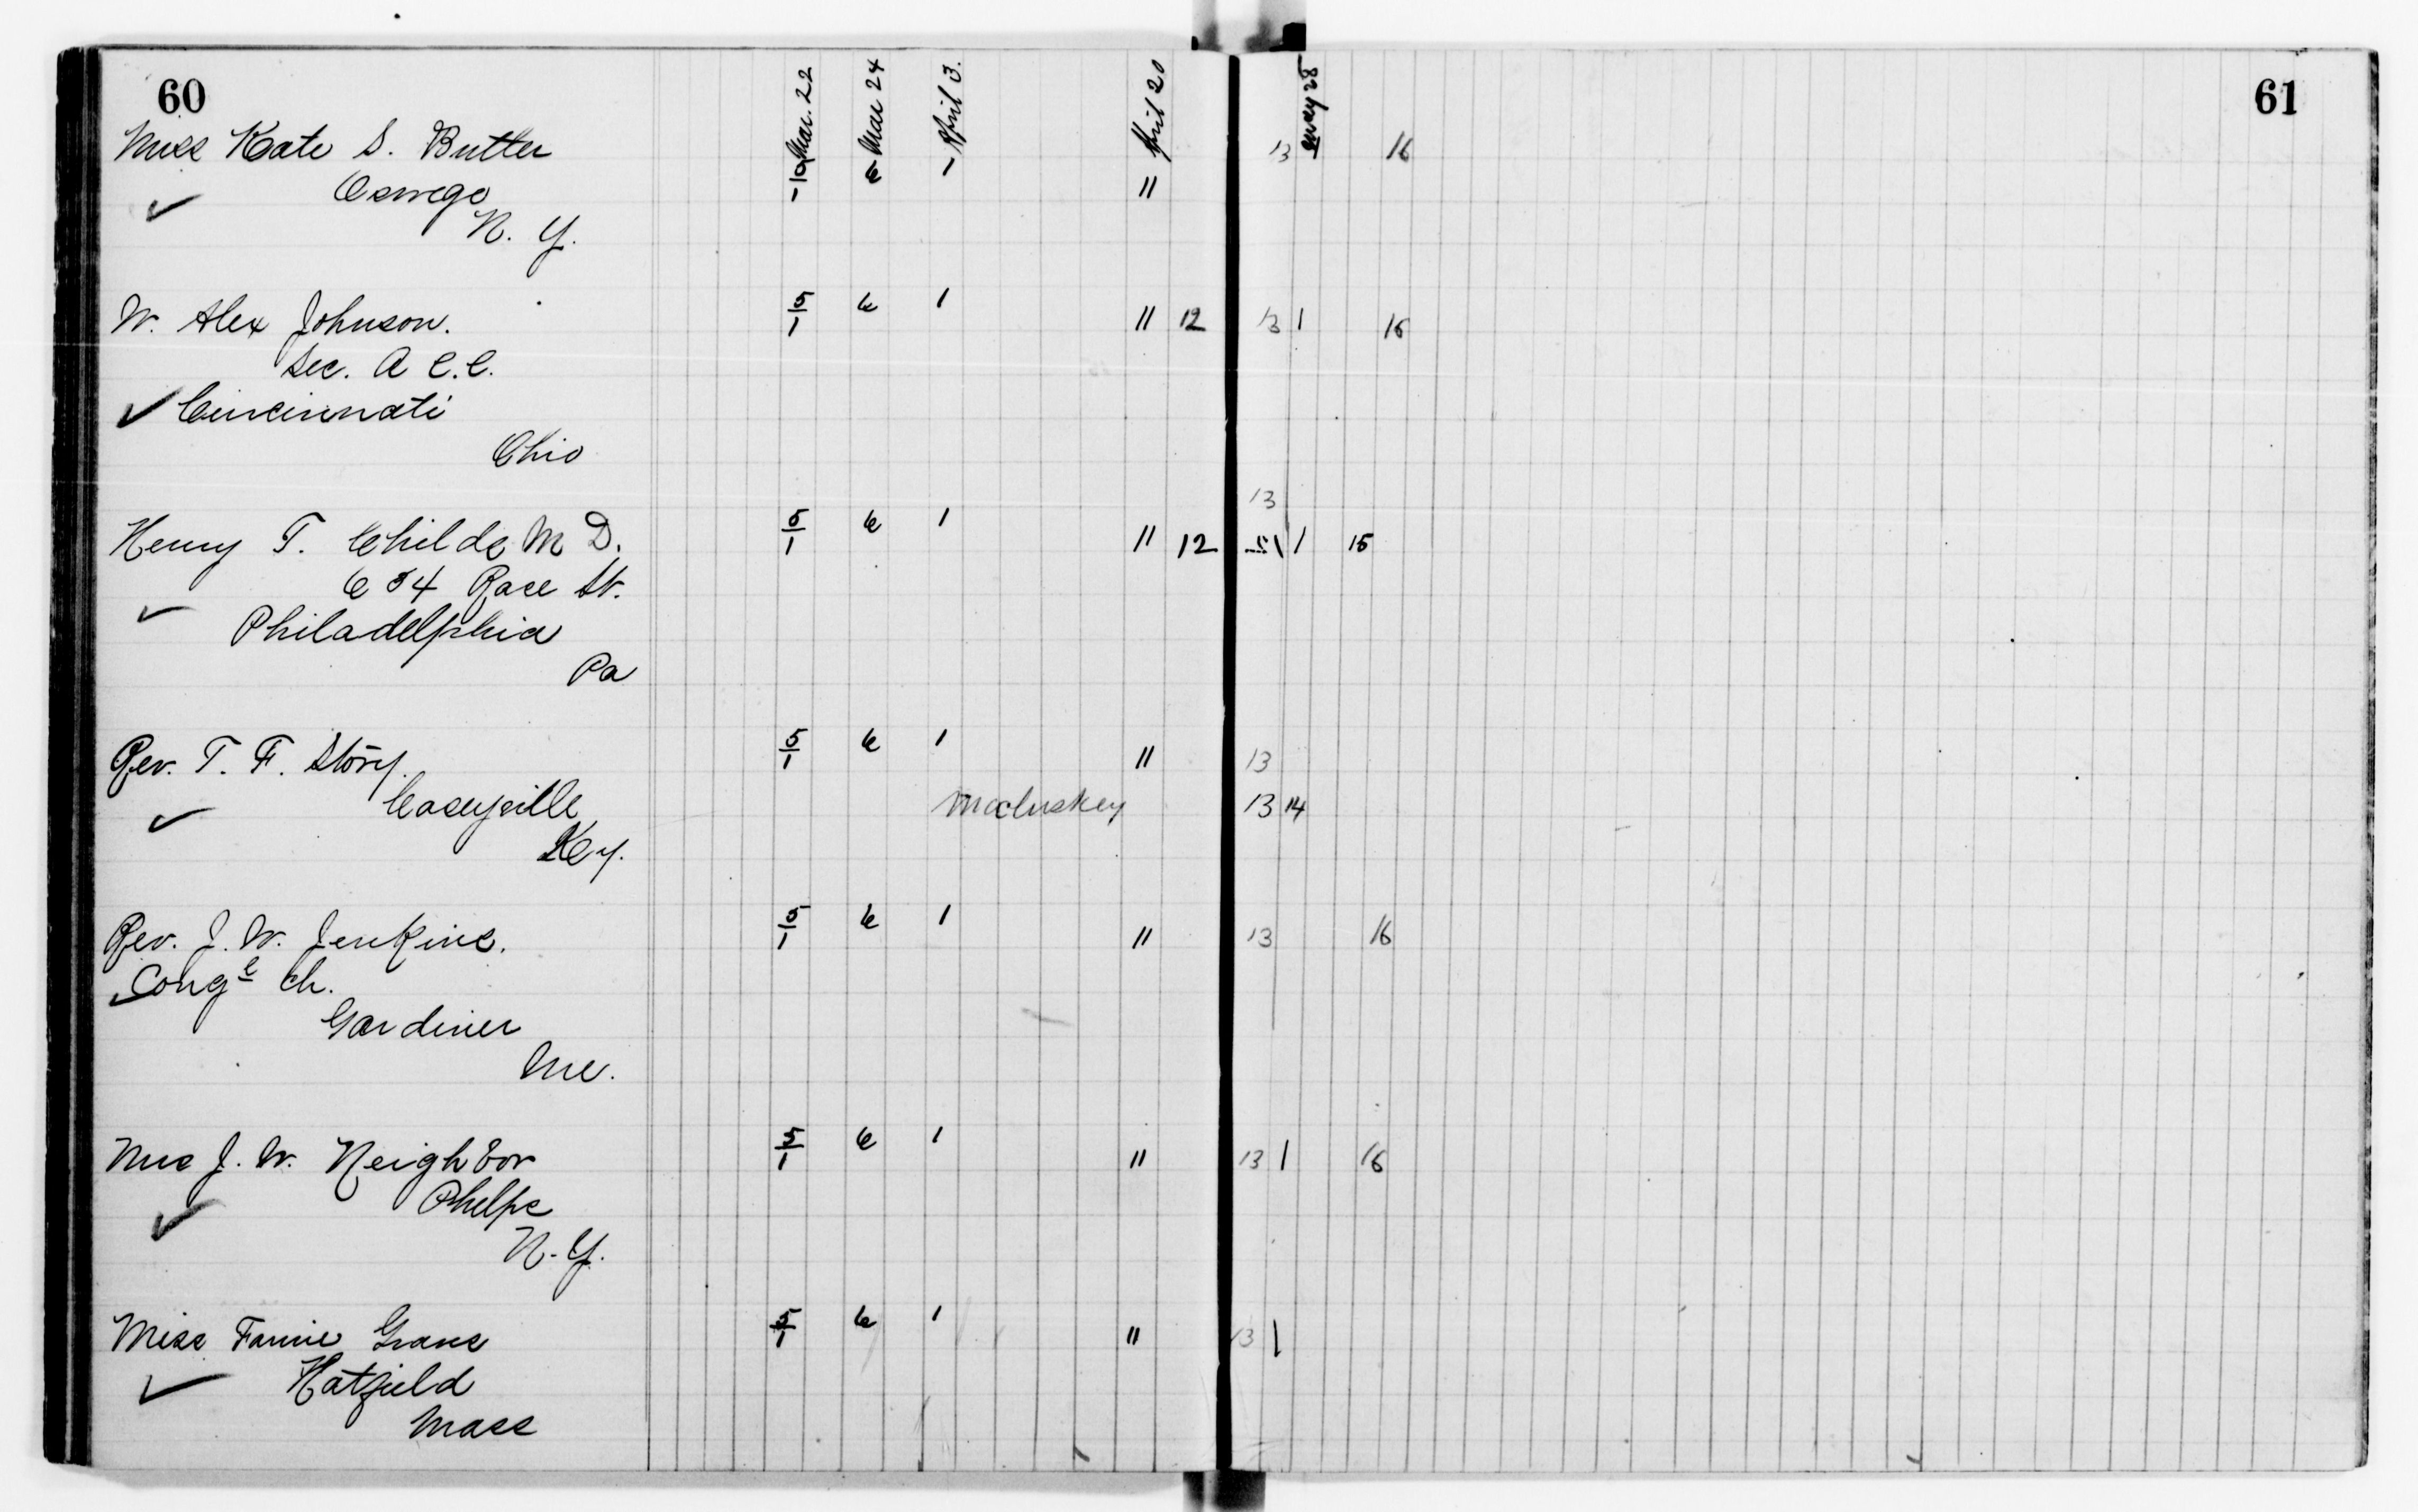 60
61
Mar. 22
Mar 24
April 3.
April 20
May 28
Miss Kate S. Butler 13 16
5/1 6 1 11
Oswego
N. Y.
5/1 6 1
W. Alex Johnson. 11 12 13 1 16
Sec. A C. C.
Cincinnati
Ohio
13
5/1 6 1
Henry T. Childs M D. 11 12 1 15
634 Race St.
Philadelphia
Pa
5/1 6 1
Rev. T. F. Story. 11 13
Caseyville 13 14
Ky.
5/1 6 1
Rev. J. W. Jenkins. 11 13 16
Congl ch.
Gardiner
Me.
5/1 6 1
Mrs J. W. Neighbor 11 13 1 16
Phelps
N. Y.
5/1 6 1
Miss Fannie Graves 11 13 1
Hatfield
Mass